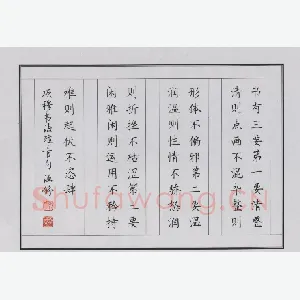 书有三要第一要清整
清则点画不混杂整则
形体不偏邪第二要温
润温则性情不骄怒润
则折挫不枯涩第三要
闲雅闲则运用不矜持
雅则起伏不恣肆
项穆书法雅言句
Shufawang.CN